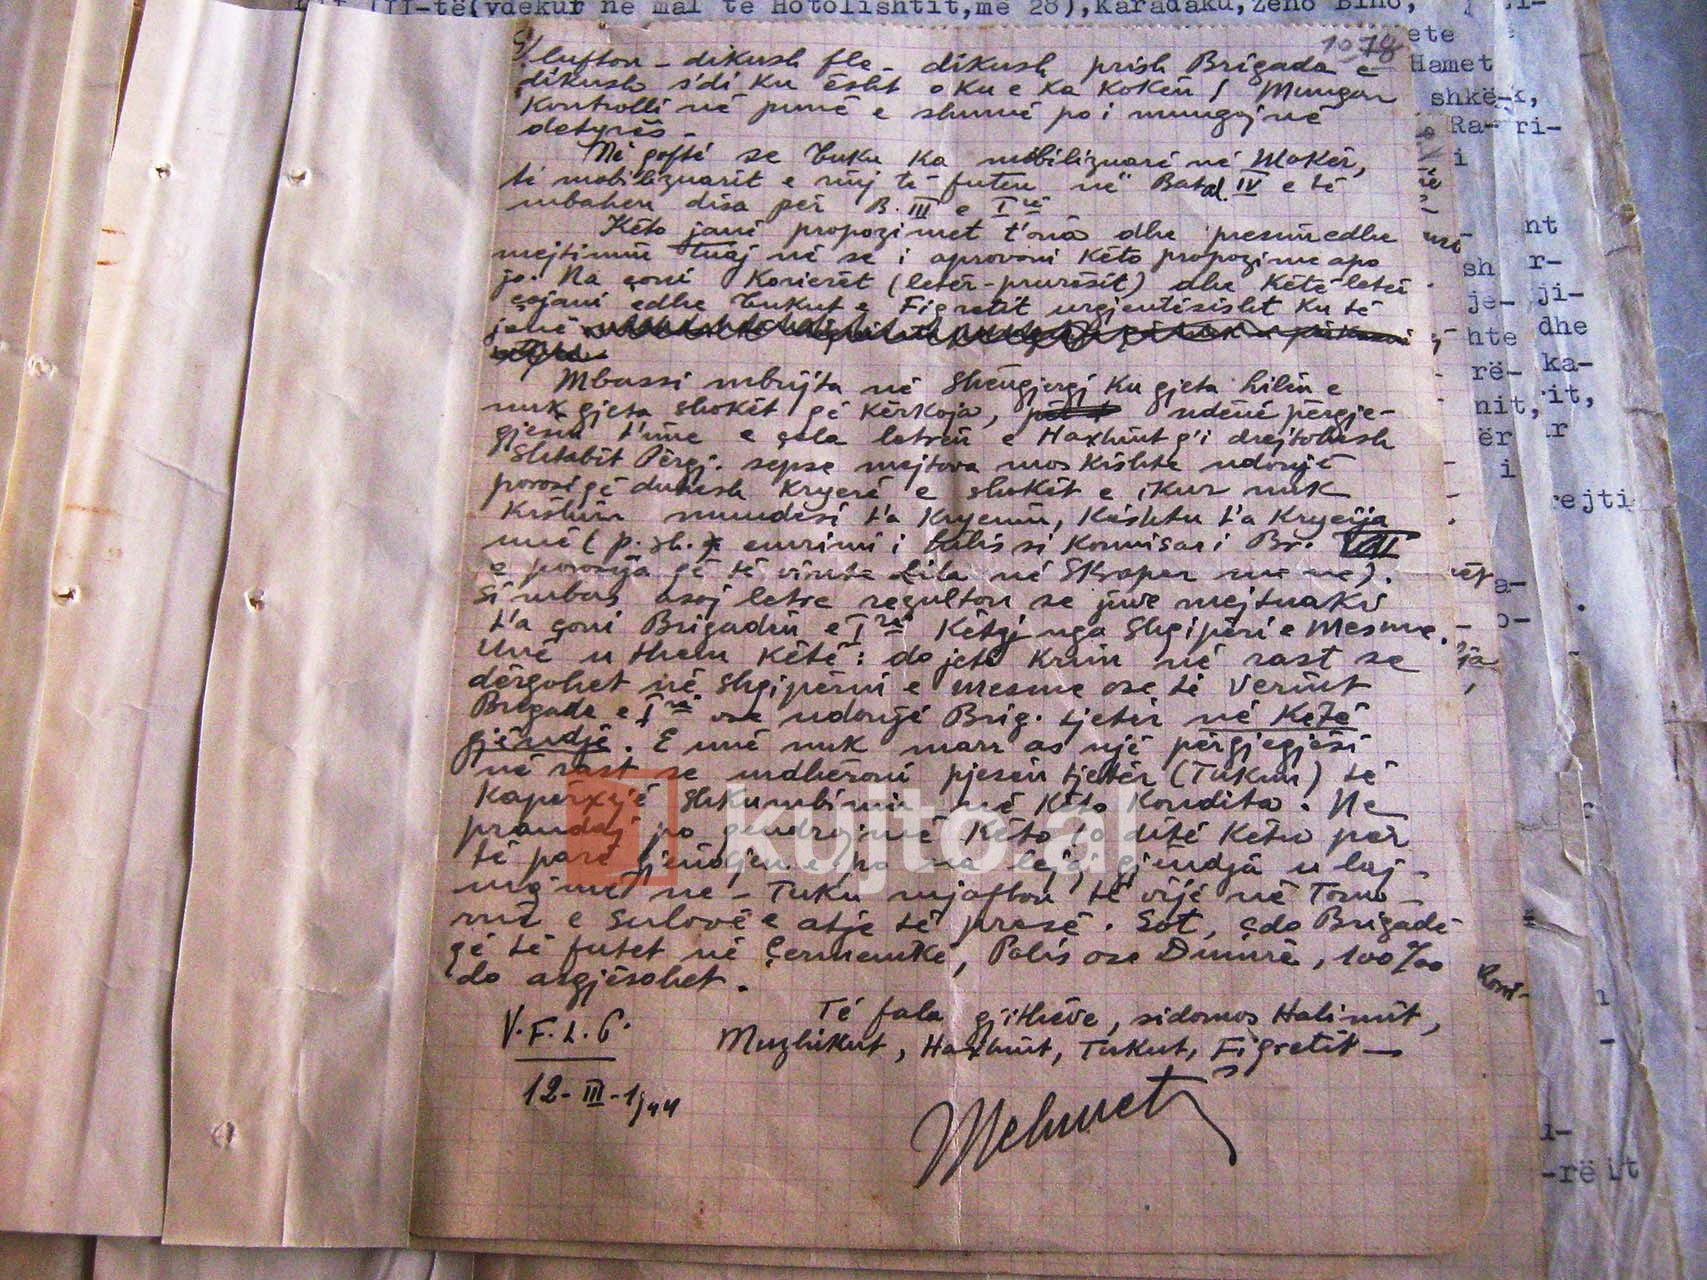 (vdekur në mal të Hotolishtit, më 28), Karadaku, Zeno
5/
1078
lufton – dikush fle – dikush prish Brigada e
dikush s'di ku ësht o ku e ka kokën! Mungon
kontrolli në punë e shumë po i mungojnë
detyrës –
Në qoftë se Tuku ka mobilizuarë në Mokër,
të mobilizuarit e rinj të futen në Batal. IV e të
mbahen disa për B. III e Irë
Këto janë propozimet t'ona dhe presim edhe
mejtimin tuaj në se i aprovoni këto propozime apo
jo. Na çoni korierët (letër-prurësit) dhe këtë letër
çojani edhe Tukut e Figretit urgjentësisht ku të
jenë
Mbassi mbrijta në Shëngjergj ku gjeta hilën e
nuk gjeta shokët që kërkoja, ndënë përgje-
gjesin t'ime e çela letrën e Haxhiut q'i drejtohesh
Shtabit Përgj. sepse mejtova mos kishte ndonjë
porosi që duhesh kryerë e shokët e ikur nuk
kishin mundësi t'a kryenin, kështu t'a kryeja
unë (p. sh. emrimi i Lilës si komisar i Br. VII
e porosija që të vinte Lila në Skrapar me ne).
Si mbas asaj letre rezulton se juve mejtuaki
t'a çoni Brigadën e Irë këtej nga Shqipëri e Mesme.
Unë u them këtë: do jetë krim në rast se
dërgohet në Shqipëri e Mesme ose të Veriut
Brigada e Irë ose ndonjë Brig. tjetër në këtë
gjëndje. E unë nuk marr as një përgjegjësi
në rast se urdhëroni pjesën tjetër (Tukun) të
kapërxejë Shkumbinin në këto kondita. Ne
prandaj po qendrojmë këto 10 ditë këtu për
të parë gjëndjen e po na lejoi gjëndja u laj-
mërojmë ne – Tuku mjafton të vijë në Tomo-
ricë e Sulovë e atje të presë. Sot, çdo Brigadë
që të futet në Çermenikë, Polis ose Dumrë, 100%
do asgjësohet.
Të fala gjithëve, sidomos Halimit,
Muzhikut, Haxhiut, Tukut, Figretit –
V.F.L.P.
12-III-1944
Mehmet
kujto.al
ete
Hamet
shkë-
Ra-
i
sh
je-
hte
rë-
nit,
ër
i
ri-
nt
r-
ji-
dhe
ka-
rit,
rejti
-rëit